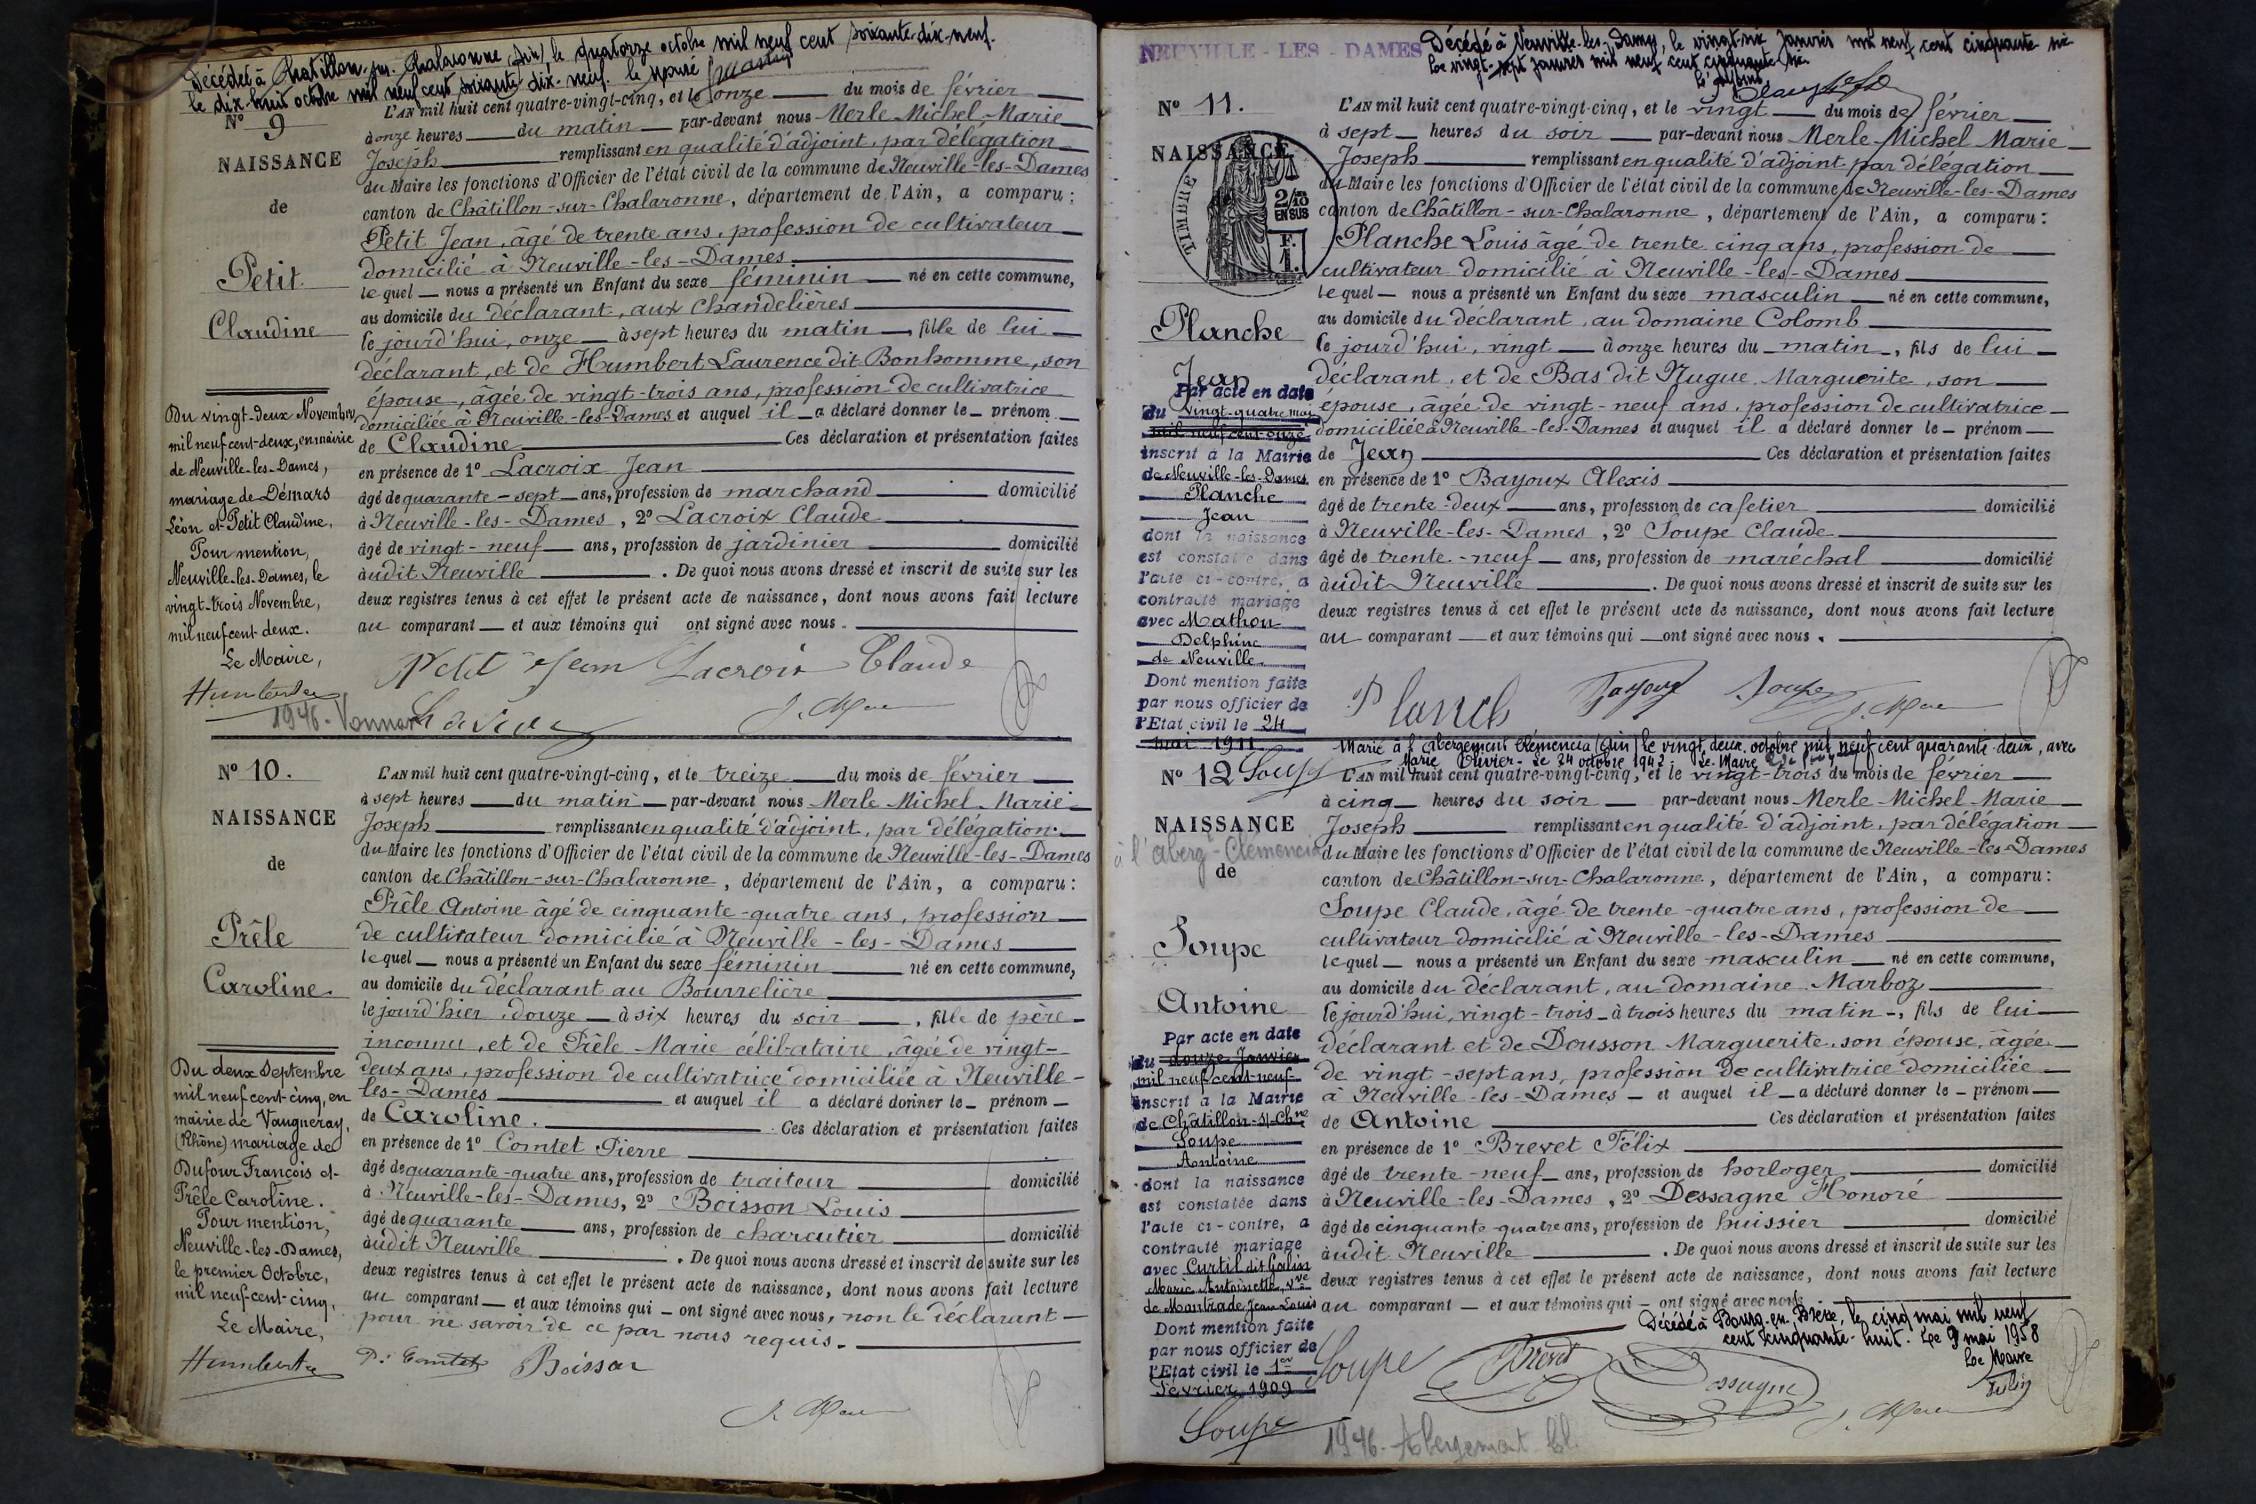 Décédée à Chatillon-sur-Chalaronne (Ain) le quatorze octobre mil neuf cent soixante-dix-neuf.
le dix-huit octobre mil neuf cent soixante-dix-neuf. le
N° 9
NAISSANCE
de
Petit
Claudine
L'AN mil huit cent quatre-vingt-cinq, et le onze du mois de février
à onze heures du matin par-devant nous Merle Michel Marie
Joseph remplissant en qualité d'adjoint, par délégation
du Maire les fonctions d'Officier de l'état civil de la commune de Neuville-les-Dames
canton de Châtillon-sur-Chalaronne, département de l'Ain, a comparu :
Petit Jean, âgé de trente ans, profession de cultivateur
domicilié à Neuville-les-Dames
lequel nous a présenté un Enfant du sexe féminin né en cette commune,
au domicile du déclarant, aux Chandelières
le jourd'hui, onze à sept heures du matin, fille de lui
déclarant, et de Humbert Laurence dit Bonhomme, son
épouse, âgée de vingt-trois ans, profession de cultivatrice
domiciliée à Neuville-les-Dames et auquel il a déclaré donner le prénom
de Claudine Ces déclaration et présentation faites
en présence de 1° Lacroix Jean
âgé de quarante-sept ans, profession de marchand domicilié
à Neuville-les-Dames, 2° Lacroix Claude
âgé de vingt-neuf ans, profession de jardinier domicilié
audit Neuville . De quoi nous avons dressé et inscrit de suite sur les
deux registres tenus à cet effet le présent acte de naissance, dont nous avons fait lecture
au comparant et aux témoins qui ont signé avec nous.
Du vingt-deux Novembre
mil neuf cent-deux, en mairie
de Neuville-les-Dames,
mariage de Démars
Léon et Petit Claudine.
Pour mention,
Neuville-les-Dames, le
vingt-trois Novembre,
mil neuf cent deux.
Le Maire,
Petit Jean Lacroix Claude
1946 - Vonnas
N° 10.
NAISSANCE
de
Prêle
Caroline.
L'AN mil huit cent quatre-vingt-cinq, et le treize du mois de février
à sept heures du matin par-devant nous Merle Michel Marie
Joseph remplissant en qualité d'adjoint, par délégation
du Maire les fonctions d'Officier de l'état civil de la commune de Neuville-les-Dames
canton de Châtillon-sur-Chalaronne, département de l'Ain, a comparu :
Prêle Antoine âgé de cinquante-quatre ans, profession
de cultivateur domicilié à Neuville-les-Dames
lequel nous a présenté un Enfant du sexe féminin né en cette commune,
au domicile du déclarant au Bourrelière
le jourd'hier, douze à six heures du soir, fille de père
inconnu, et de Prêle Marie célibataire, âgée de vingt-
deux ans, profession de cultivatrice domiciliée à Neuville-
les-Dames et auquel il a déclaré donner le prénom
de Caroline. Ces déclaration et présentation faites
en présence de 1° Comtet Pierre
âgé de quarante-quatre ans, profession de traiteur domicilié
à Neuville-les-Dames, 2° Boisson Louis
âgé de quarante ans, profession de charcutier domicilié
audit Neuville . De quoi nous avons dressé et inscrit de suite sur les
deux registres tenus à cet effet le présent acte de naissance, dont nous avons fait lecture
au comparant et aux témoins qui ont signé avec nous, non le déclarant
pour ne savoir de ce par nous requis.
Du deux Septembre
mil neuf cent-cinq, en
mairie de Vaugneray,
(Rhône) mariage de
Dufour François et
Prêle Caroline.
Pour mention,
Neuville-les-Dames,
le premier Octobre,
mil neuf-cent-cinq,
Le Maire,
P. Comtet Boisson
NEUVILLE-LES-DAMES
Décédé à Neuville-les-Dames, le vingt-six janvier mil neuf cent cinquante six
Le vingt-sept janvier mil neuf cent cinquante-six.
L'adjoint
N° 11.
NAISSANCE
TIMBRE
2/10
EN SUS
F.
1.
Planche
Jean
L'AN mil huit cent quatre-vingt-cinq, et le vingt du mois de février
à sept heures du soir par-devant nous Merle Michel Marie
Joseph remplissant en qualité d'adjoint par délégation
du Maire les fonctions d'Officier de l'état civil de la commune de Neuville-les-Dames
canton de Châtillon-sur-Chalaronne, département de l'Ain, a comparu :
Planche Louis âgé de trente cinq ans, profession de
cultivateur domicilié à Neuville-les-Dames
lequel nous a présenté un Enfant du sexe masculin né en cette commune,
au domicile du déclarant, au domaine Colomb
le jourd'hui, vingt à onze heures du matin, fils de lui
déclarant, et de Bas dit Nugue Marguerite, son
épouse, âgée de vingt-neuf ans, profession de cultivatrice
domiciliée à Neuville-les-Dames et auquel il a déclaré donner le prénom
de Jean Ces déclaration et présentation faites
en présence de 1° Bayoux Alexis
âgé de trente-deux ans, profession de cafetier domicilié
à Neuville-les-Dames, 2° Soupe Claude
âgé de trente-neuf ans, profession de maréchal domicilié
audit Neuville . De quoi nous avons dressé et inscrit de suite sur les
deux registres tenus à cet effet le présent acte de naissance, dont nous avons fait lecture
au comparant et aux témoins qui ont signé avec nous.
Par acte en date
du vingt-quatre mai
mil neuf cent onze
inscrit à la Mairie
de Neuville-les-Dames
Planche
Jean
dont la naissance
est constatée dans
l'acte ci-contre, a
contracté mariage
avec Mathon
Delphine
de Neuville
Dont mention faite
par nous officier de
l'Etat civil le 24
mai 1911
Planch Soupe
Marié à l'Abergement Clémencia (Ain) le vingt deux octobre mil neuf cent quarante-deux, avec
Marie Olivier - Le 24 octobre 1942. Le Maire
N° 12 Soupe
NAISSANCE
à l'Aberg^t-Clémencia
de
Soupe
Antoine
L'AN mil huit cent quatre-vingt-cinq, et le vingt-trois du mois de février
à cinq heures du soir par-devant nous Merle Michel Marie
Joseph remplissant en qualité d'adjoint, par délégation
du Maire les fonctions d'Officier de l'état civil de la commune de Neuville-les-Dames
canton de Châtillon-sur-Chalaronne, département de l'Ain, a comparu :
Soupe Claude, âgé de trente-quatre ans, profession de
cultivateur domicilié à Neuville-les-Dames
lequel nous a présenté un Enfant du sexe masculin né en cette commune,
au domicile du déclarant, au domaine Marboz
le jourd'hui, vingt-trois à trois heures du matin, fils de lui
déclarant et de Dousson Marguerite, son épouse, âgée
de vingt-sept ans, profession de cultivatrice domiciliée
à Neuville-les-Dames et auquel il a déclaré donner le prénom
de Antoine Ces déclaration et présentation faites
en présence de 1° Brevet Félix
âgé de trente-neuf ans, profession de horloger domicilié
à Neuville-les-Dames, 2° Dessagne Honoré
âgé de cinquante-quatre ans, profession de huissier domicilié
audit Neuville . De quoi nous avons dressé et inscrit de suite sur les
deux registres tenus à cet effet le présent acte de naissance, dont nous avons fait lecture
au comparant et aux témoins qui ont signé avec nous
Par acte en date
du douze Janvier
mil neuf cent-neuf
inscrit à la Mairie
de Châtillon-s/-Ch^ne
Soupe
Antoine
dont la naissance
est constatée dans
l'acte ci-contre, a
contracté mariage
avec Curtil dit Galin
Marie Antoinette, v^ve
de Montrade Jean Louis
Dont mention faite
par nous officier de
l'Etat civil le 1^er
Février 1909
Décédé à Bourg-en-Bresse, le cinq mai mil neuf
cent cinquante-huit. Le 9 mai 1958
Le Maire
Soupe Brevet Dessagne
Soupe
1946 - Abergement Cl.